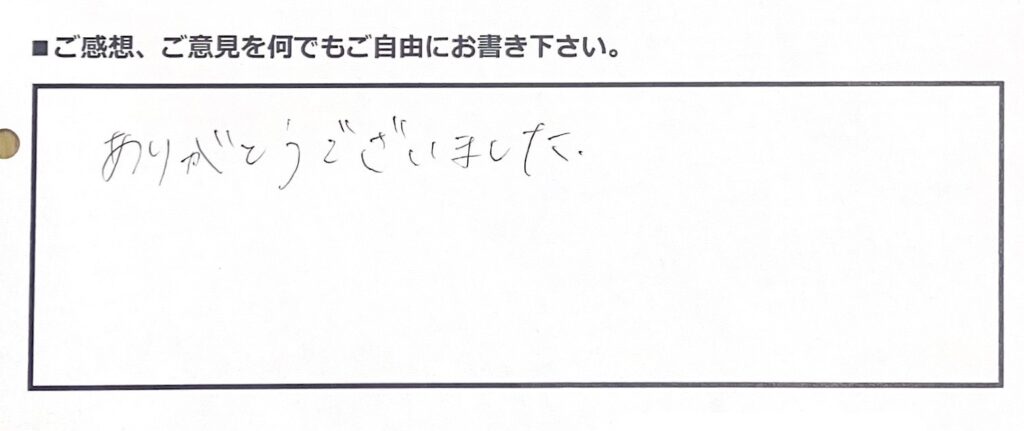 ■ご感想、ご意見を何でもご自由にお書き下さい。
ありがとうございました.